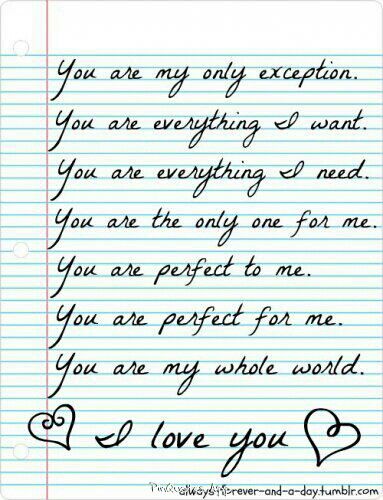 You are my only exception.
You are everything I want.
You are everything I need.
You are the only one for me.
You are perfect to me.
You are perfect for me.
You are my whole world.
I love you
always-forever-and-a-day.tumblr.com